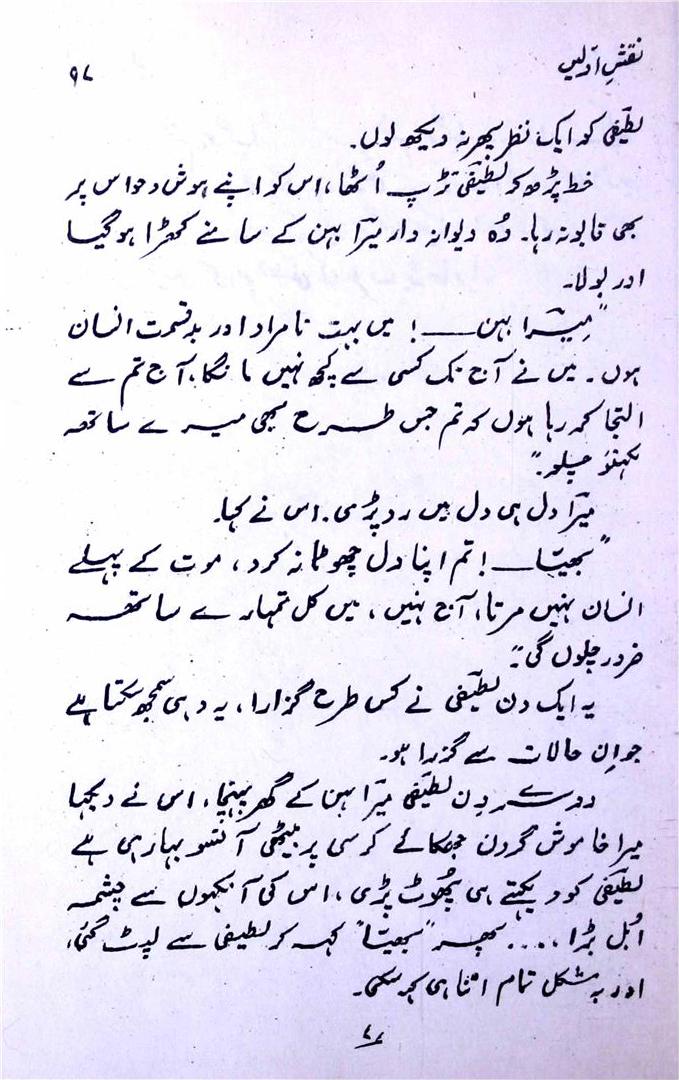 نقشِ اوّلیں
۹۷
لطیفی کو ایک نظر پھر نہ دیکھ لوں۔
خط پڑھ کر لطیفی تڑپ اُٹھا، اس کو اپنے ہوش و حواس پر
بھی قابو نہ رہا۔ وُہ دیوانہ وار میرا بہن کے سامنے کھڑا ہوگیا
اور بولا۔
"میرا بہن ——! میں بہت نامراد اور بدقسمت انسان
ہوں۔ میں نے آج تک کسی سے کچھ نہیں مانگا، آج تم سے
التجا کر رہا ہوں کہ تم جس طرح بھی میرے ساتھ
لکھنؤ چلو۔"
میرا دل ہی دل میں رو پڑی۔ اس نے کہا۔
"بھیّا ——! تم اپنا دل چھوٹا نہ کرو، موت کے پہلے
انسان نہیں مرتا، آج نہیں، میں کل تمہارے ساتھ
ضرور چلوں گی۔"
یہ ایک دن لطیفی نے کس طرح گزارا، یہ وہی سمجھ سکتا ہے
جو اِن حالات سے گزرا ہو۔
دوسرے دِن لطیفی میرا بہن کے گھر پہنچا، اس نے دیکھا
میرا خاموش گردن جھکائے کرسی پر بیٹھی آنسو بہا رہی ہے
لطیفی کو دیکھتے ہی پھُوٹ پڑی، اس کی آنکھوں سے چشمہ
اُبل پڑا، .... پھر "بھیّا" کہہ کر لطیفی سے لپٹ گئی،
اور بہ مشکل تمام اتنا ہی کہہ سکی۔